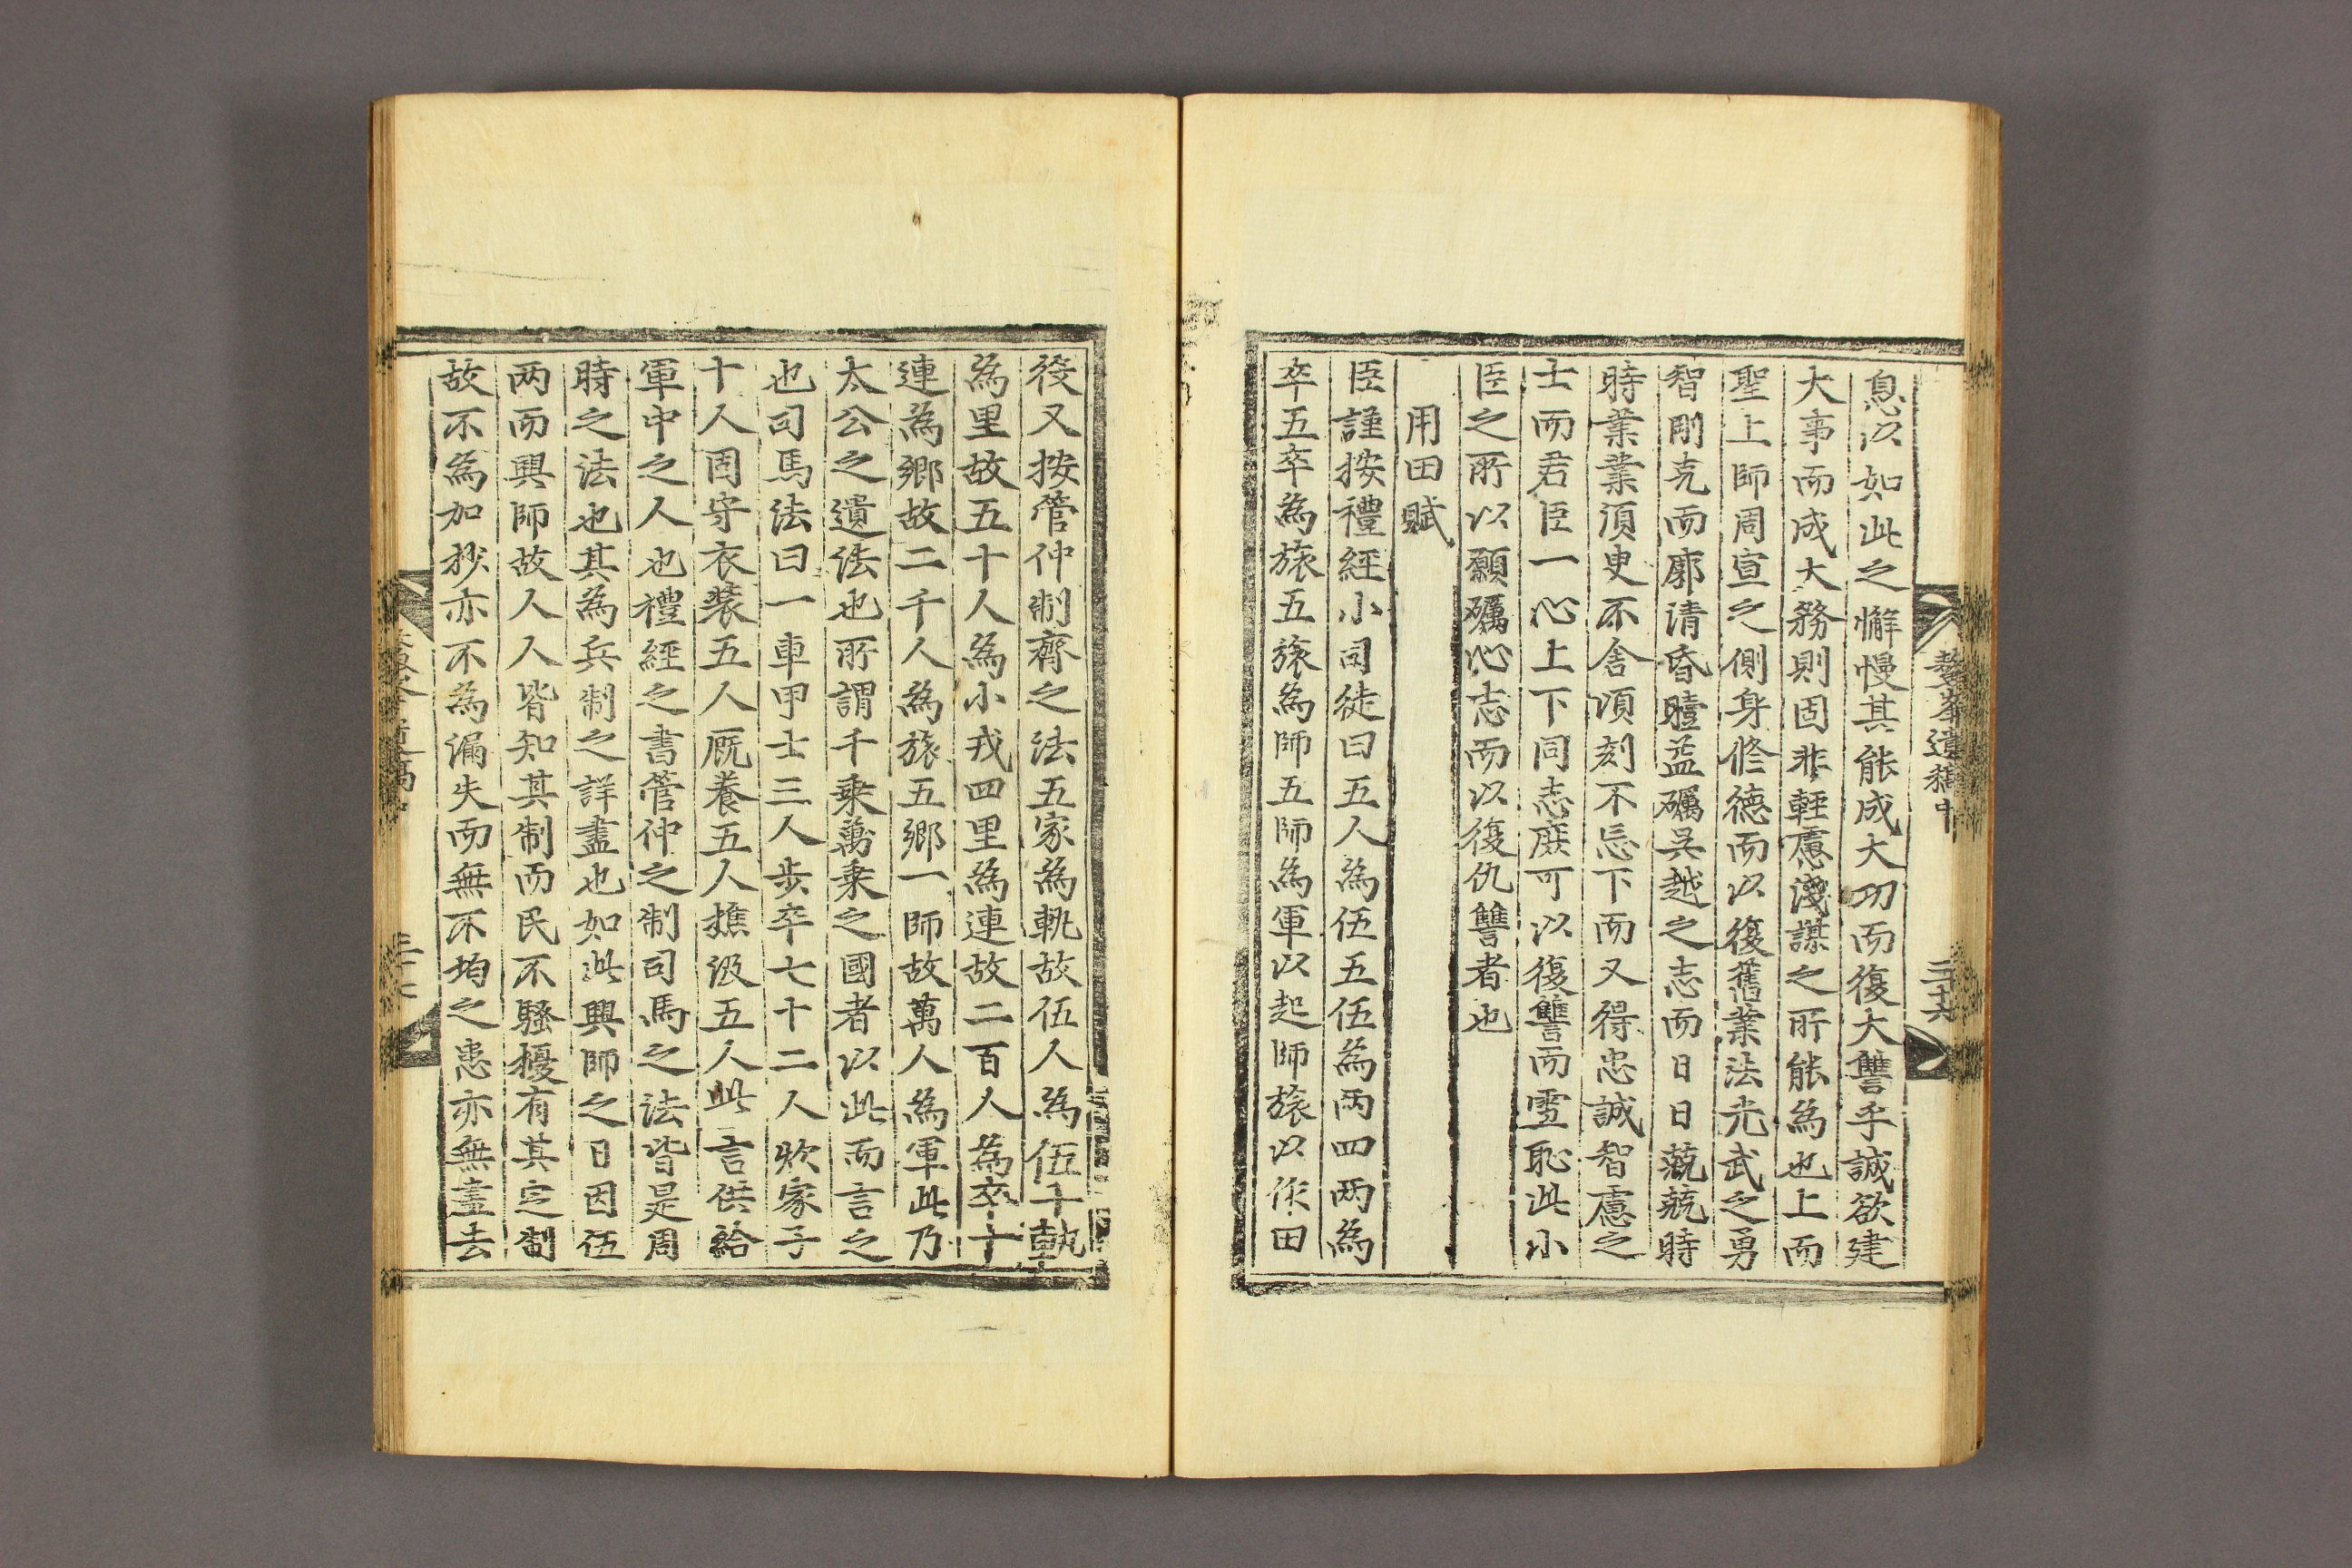 鰲峯遺稿中
三十六
息以如此之懈慢其能成大功而復大讐乎誠欲建
大事而成大務則固非輕慮淺謀之所能為也上而
聖上師周宣之側身修德而以復舊業法光武之勇
智剛克而廓清昏曀益礪吳越之志而日日兢兢時
時業業須臾不舍頃刻不忘下而又得忠誠智慮之
士而君臣一心上下同志庶可以復讐而雪恥此小
臣之所以願礪心志而以復仇讐者也
用田賦
臣謹按禮經小司徒曰五人為伍五伍為两四两為
卒五卒為旅五旅為師五師為軍以起師旅以作田
役又按管仲制齊之法五家為軌故伍人為伍十軌
為里故五十人為小戎四里為連故二百人為卒十
連為鄉故二千人為旅五鄉一師故萬人為軍此乃
太公之遺法也所謂千乗萬乗之國者以此而言之
也司馬法曰一車甲士三人步卒七十二人炊家子
十人固守衣装五人厩養五人樵汲五人此言供給
軍中之人也禮經之書管仲之制司馬之法皆是周
時之法也其為兵制之詳盡也如此興師之日因伍
两而興師故人人皆知其制而民不騷擾有其定制
故不為加抄亦不為漏失而無不均之患亦無盡去